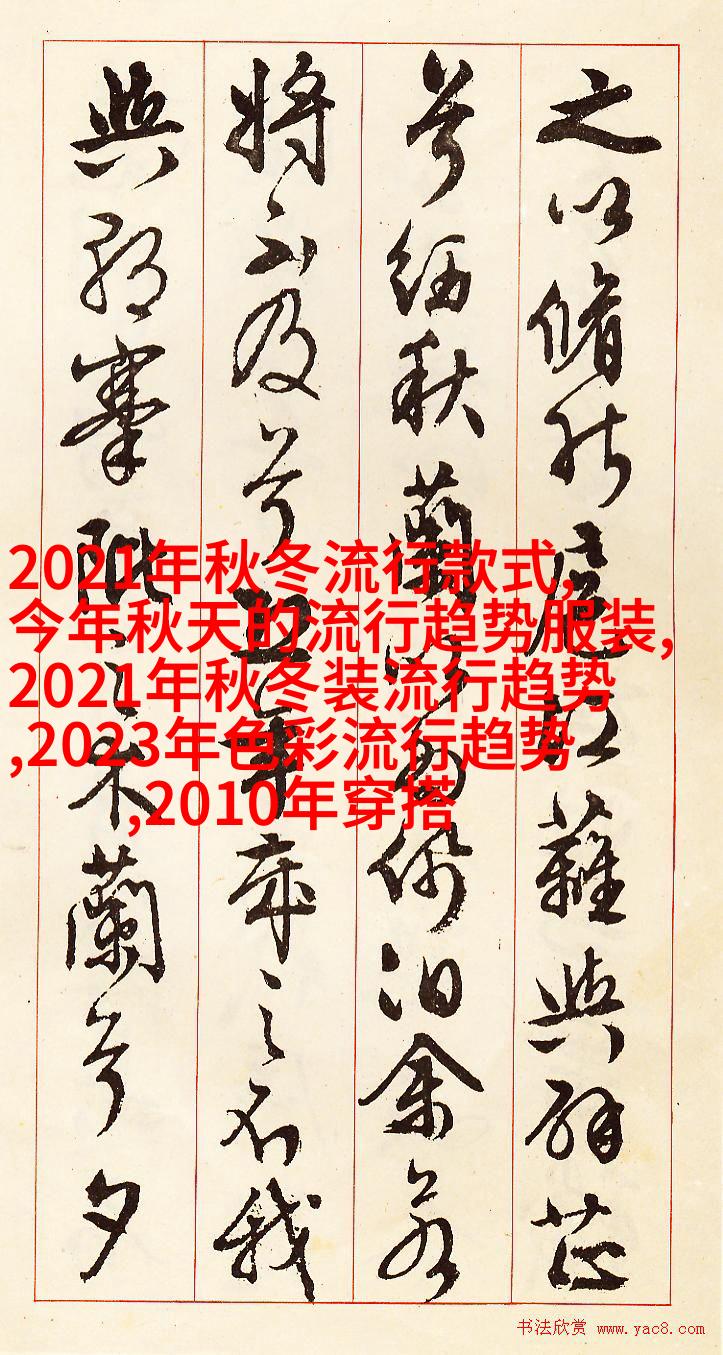 之以脩能扈江蘺與辟芷
兮紉秋蘭以為佩汩余若
將不及兮恐年歲之不我
與朝搴阰之木蘭兮夕
2021年秋冬流行款式,
今年秋天的流行趋势服装,
2021年秋冬装流行趋势
,2023年色彩流行趋势
,2010年穿搭
书法欣赏 www.yac8.com